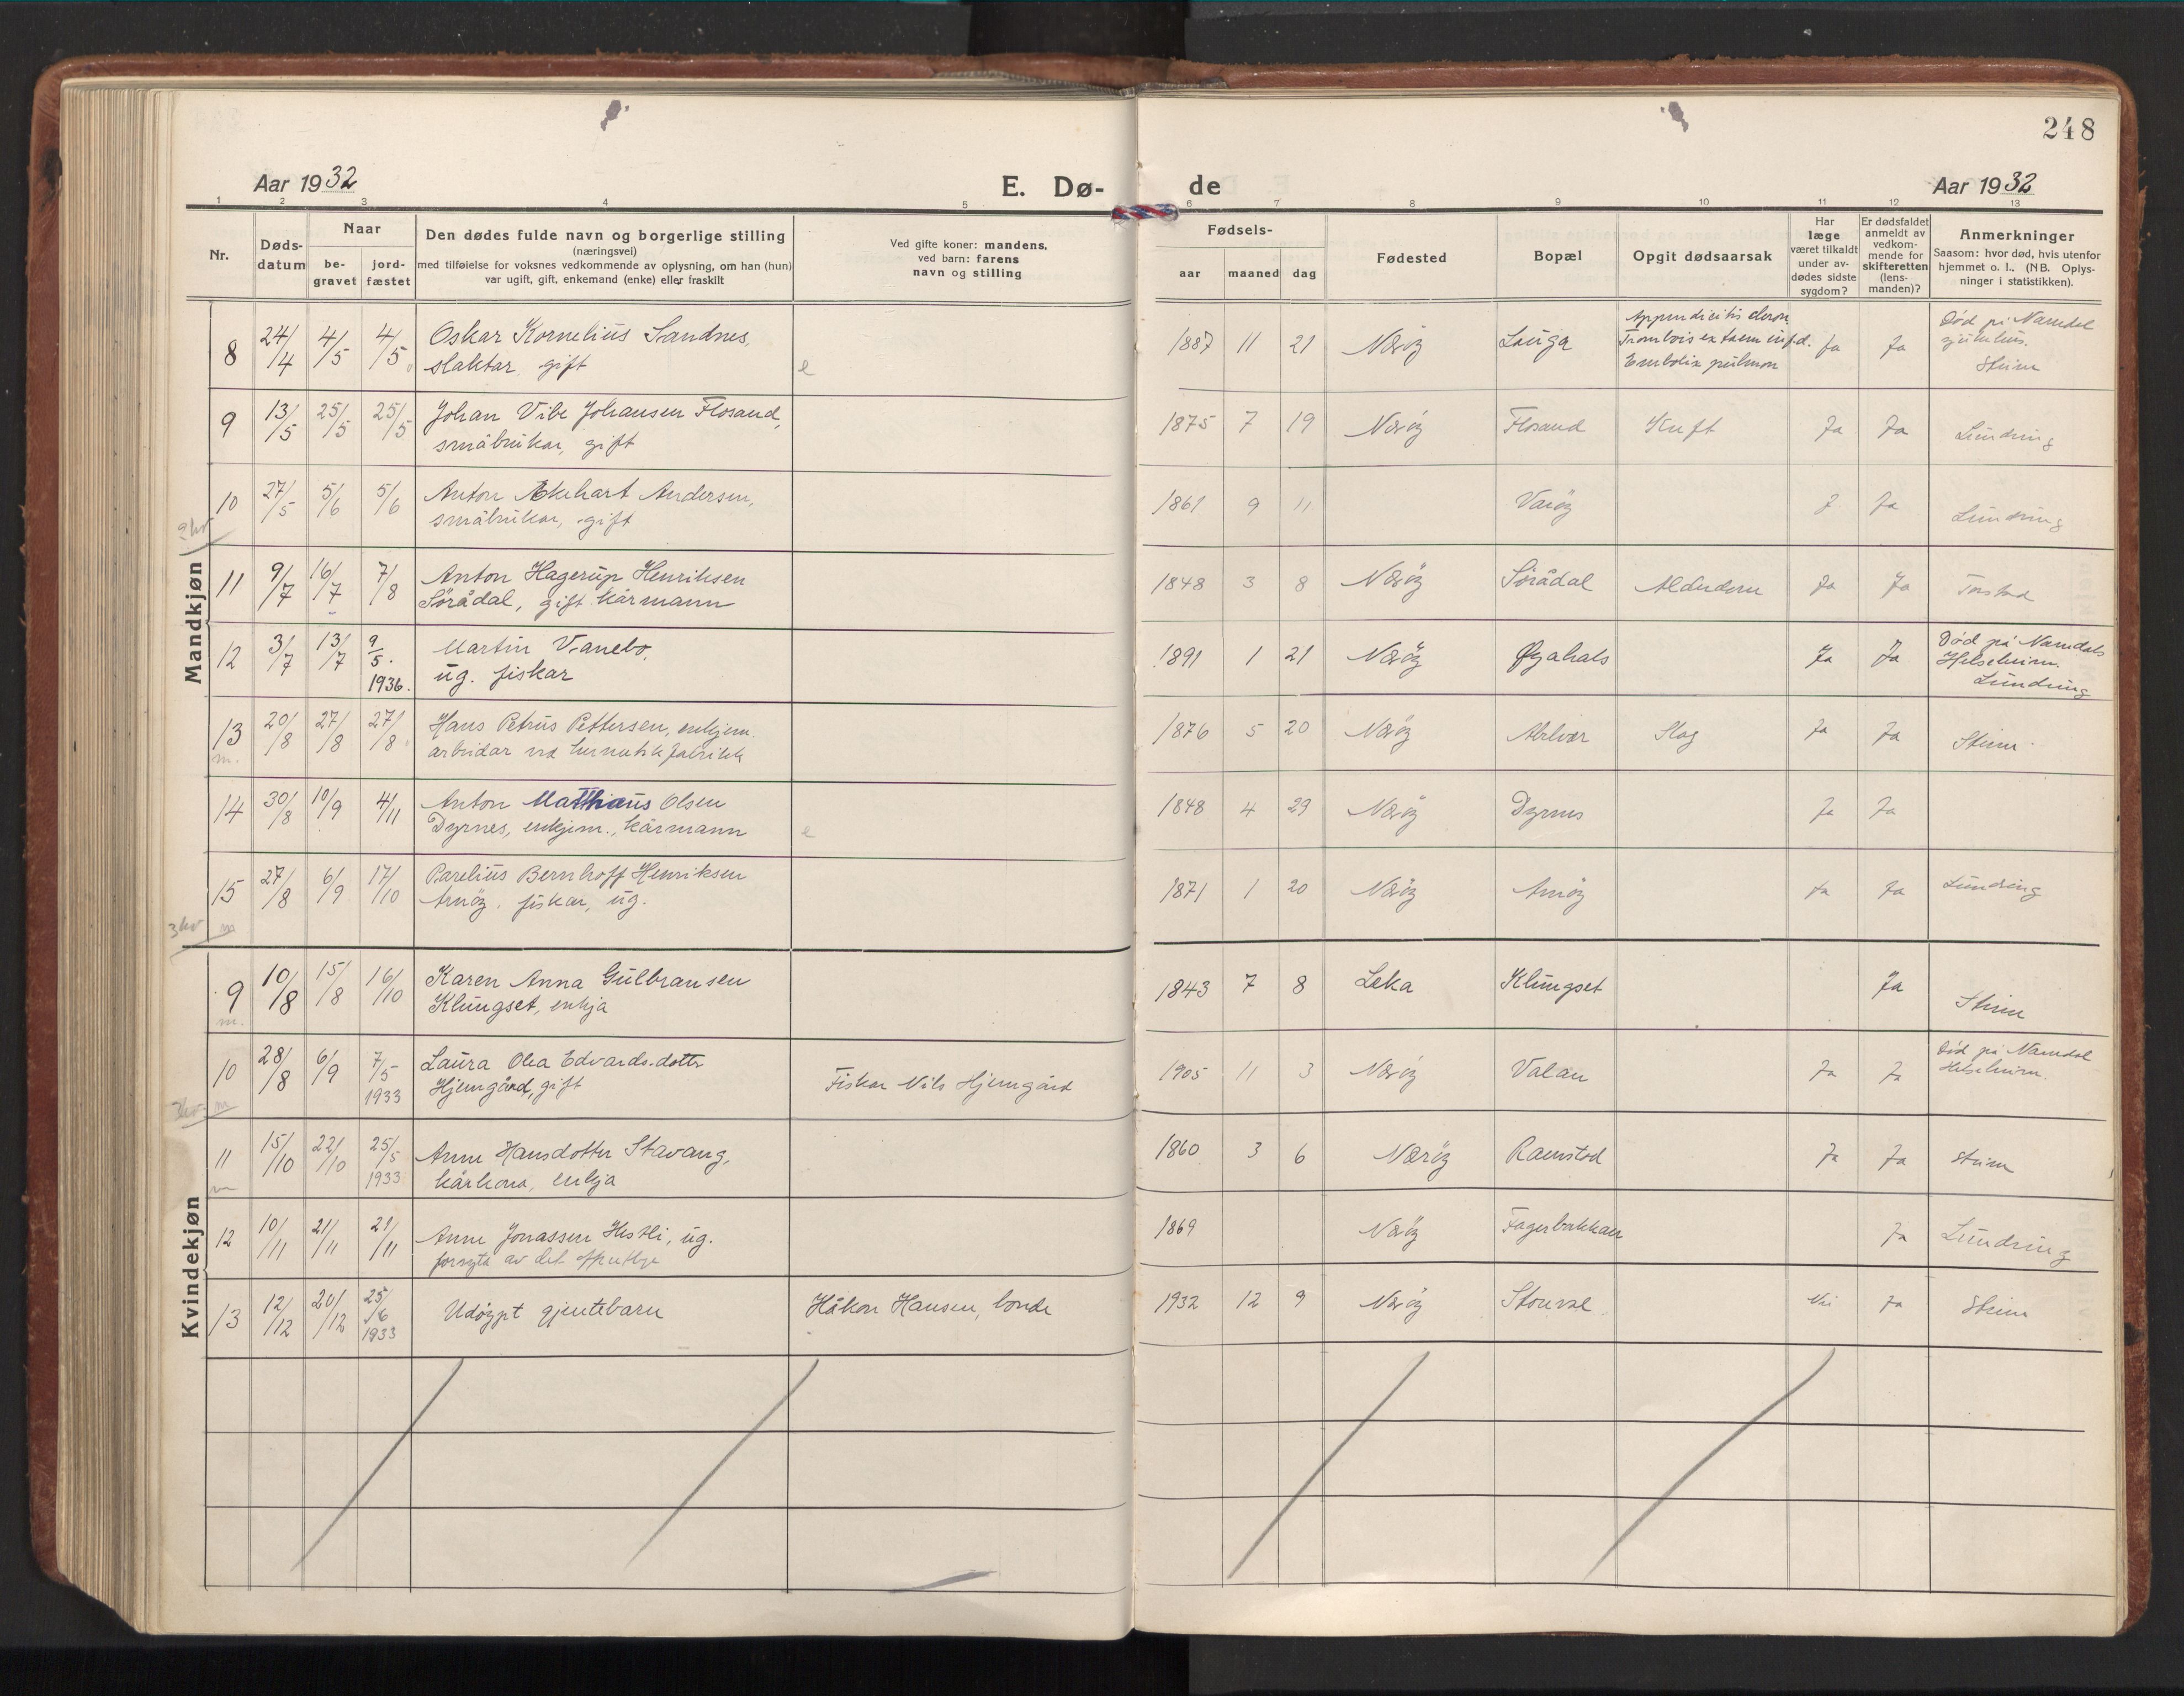 248
Aar 1932
E. Dø-
de
Aar 1932
1 2 3 4 5 6 7 8 9 10 11 12 13
Nr.
Døds-
datum
Naar
be-
gravet
jord-
fæstet
Den dødes fulde navn og borgerlige stilling
(næringsvei)
med tilføielse for voksnes vedkommende av oplysning, om han (hun)
var ugift, gift, enkemand (enke) eller fraskilt
Ved gifte koner: mandens,
ved barn: farens
navn og stilling
Fødsels-
aar maaned dag
Fødested
Bopæl
Opgit dødsaarsak
Har
læge
været tilkaldt
under av-
dødes sidste
sygdom?
Er dødsfaldet
anmeldt av
vedkom-
mende for
skifteretten
(lens-
manden)?
Anmerkninger
Saasom: hvor død, hvis utenfor
hjemmet o. l., (NB. Oplys-
ninger i statistikken).
Mandkjøn
8 24/4 4/5 4/5 Oskar Kornelius Sandnes,
slaktar, gift
e
1887 11 21 Nærøy Lauga
Appendicitis
Embolia pulmon
Ja Ja
Død på Namdal
sjukehus.
Steine
9 13/5 25/5 25/5 Johan Vibe Johansen Flosand,
småbrukar, gift
1875 7 19 Nærøy Flosand Kreft Ja Ja Lundring
10 27/5 5/6 5/6 Anton Andersen,
småbrukar, gift
1861 9 11 Varøy J Ja Lundring
2 kv
11 9/7 16/7 7/8 Anton Hagerup Henriksen
Sørådal, gift kårmann
1848 3 8 Nærøy Sørådal Alderdom Ja Ja Torstad
12 3/7 13/7 9/5. 1936. Martin Vanebo,
ug. fiskar
1891 1 21 Nærøy Øyahals Ja Ja
Død på Namdals
Helseheim.
Lundring
13 20/8 27/8 27/8 Hans Petrus Pettersen, enkjem.
arbeidar ved hermetikkfabrikk
m.
1876 5 20 Nærøy Abelvær Slag Ja Ja Steine
14 30/8 10/9 4/11 Anton Matthæus Olsen
Dyrnes, enkjem., kårmann
e
1848 4 29 Nærøy Dyrnes Ja Ja
15 27/8 6/9 17/10 Parelius Bernhoff Henriksen
Arnøy, fiskar, ug.
3 kv m
1871 1 20 Nærøy Arnøy Ja Ja Lundring
Kvindekjøn
9 10/8 15/8 16/10 Karen Anna Gulbransen
Klungset, enkja
m.
1843 7 8 Leka Klungset Ja Steine
10 28/8 6/9 7/5 1933 Laura Olea Edvardsdotter
Hjemgård, gift
Fiskar Nils Hjemgård
3 kv. m
1905 11 3 Nærøy Valan Ja Ja
Død på Namdal
Helseheim.
11 15/10 22/10 25/5 1933 Anne Hansdotter Stavang,
kårkona, enkja
m
1860 3 6 Nærøy Ramstad Ja Ja Steine
12 10/11 21/11 21/11 Anne Jonassen Hestli, ug.
forsytt av det offentlige
1869 Nærøy Fagerbakken Ja Lundring
13 12/12 20/12 25/6 1933 Udøypt gjentebarn
Håkon Hansen, bonde
1932 12 9 Nærøy Storval Nei Ja Steine